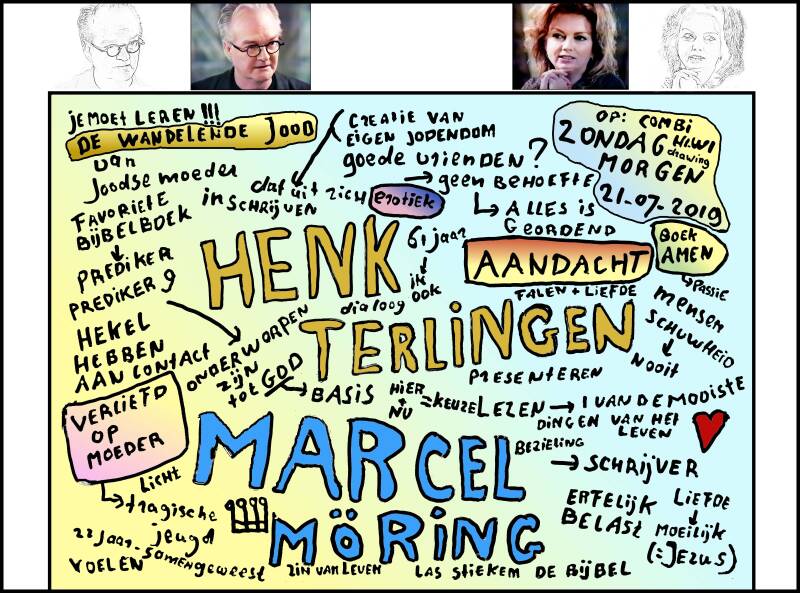 je moet LEREN !!!
DE WANDELENDE JOOD
van
Joodse moeder
FAVORIETE
BIJBELBOEK
PREDIKER
PREDIKER 9
HEKEL
HEBBEN
AAN CONTACT
CREATIE VAN
EIGEN JODENDOM
goede vrienden?
dat uit zich
in SCHRIJVEN
erotiek
geen BEHOEFTE
ALLES IS
GEORDEND
OP: COMBI
ZONDAG
HI.WI
drawing
MORGEN
21-07-2019
BOEK
AMEN
PASSIE
mensen
SCHUWHEID
NOOIT
HENK
61 jaar
IN
OOK
AANDACHT
FALEN + LIEFDE
dialoog
TERLINGEN
ONDERWORPEN
ZIJN
tot GOD
PRESENTEREN
BASIS
HIER
+
NU
=KEUZE
LEZEN
1 VAN DE MOOISTE
DINGEN VAN HET
LEVEN
VERLIEFD
OP
MOEDER
MARCEL
BEZIELING
SCHRIJVER
LICHT
tragische
jeugd
MÖRING
ERFELIJK
BELAST
LIEFDE
MOEILIJK
(=JEZUS)
22 JAAR - SAMENGEWEEST
VOELEN
ZIN VAN LEVEN
LAS STIEKEM DE BIJBEL